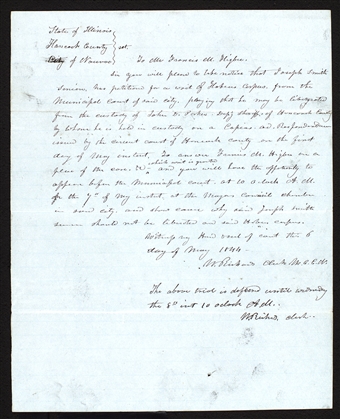 State of Illinois
Hancock County } sct.
City of Nauvoo
To Mr Francis M. Higbee.
Sir you will please to take notice that Joseph Smith
Senior, has petitioned for a writ of Habeas Corpus from the
Municipal Court of said city, praying that he may be liberated
from the custody of John D. Parker, Depy Shoff, of Hancock County
by whom he is held in custody on a Capias ad. Respondendum
issued by the circuit court of Hancock county on the first
day of May instant, To answer Francis M. Higbee on a
plea of the case; "&" which writ is granted and you will have the oppertunity to
appear before the Municipal court, at 10 o clock A.M.
on the 7th of May instant, at the Mayors council chamber
in said city, and shew cause why said Joseph Smith
senior should not be liberated on said Habeas corpus.
Witness my Hand seal of court this 6
day of May 1844
W. Richards Clerk M. C. C. N.
The above trial is defered untill wednesday
the 8th inst 10 oclock A.M.
W. Richards, clerk.